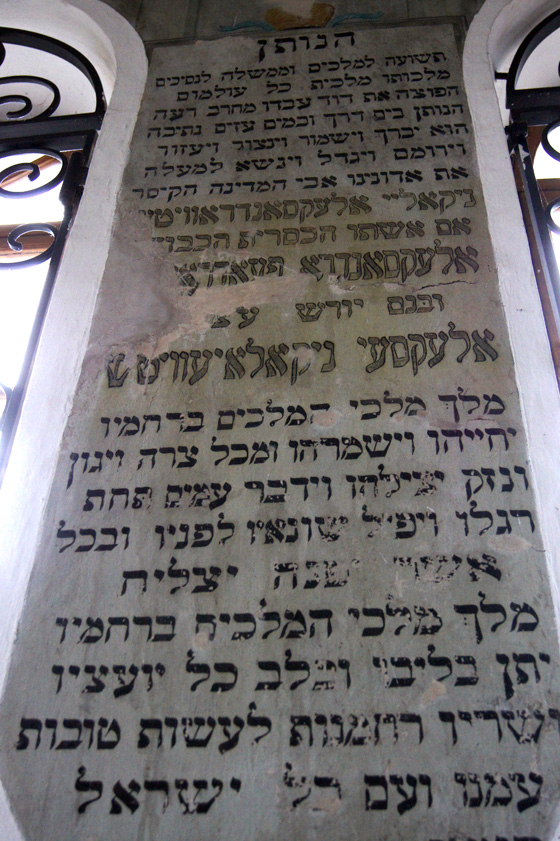 הנותן
תשועה למלכים וממשלה לנסיכים
מלכותו מלכות כל עולמים
הפוצה את דוד עבדו מחרב רעה
הנותן בים דרך ובמים עזים נתיבה
הוא יברך וישמור וינצור ויעזור
וירומם ויגדל וינשא למעלה
את אדונינו אבי המדינה הקיסר
ניקאליי אלעקסאנדראוויטש
אם אשתו הכסרית הכבודה
אלעקסאנדרא
ובנם יורש עצ
אלעקסעי ניקאלאיעוויטש
מלך מלכי המלכים ברחמיו
יחייהו וישמרהו ומכל צרה ויגון
ונזק יצילהו וידבר עמים תחת
רגלו ויפיל שונאיו לפניו ובכל
אשר יפנה יצליח
מלך מלכי המלכים ברחמיו
יתן בליבו ובלב כל יועציו
ושריו רחמנות לעשות טובות
עמנו ועם כל ישראל